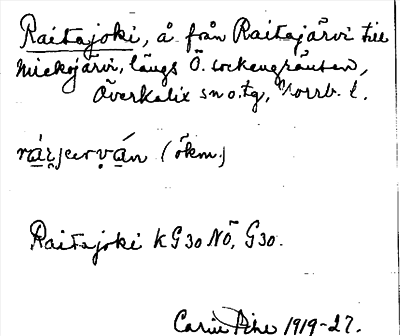 Raitajoki, å från Raitajärvi till
Miekojärvi, längs Ö. sockengränsen,
Överkalix sn o. tg, Norrb. l.
(ökn.)
Raitajoki K G30 NÖ, G30.
Carin Pihl 1919-27.